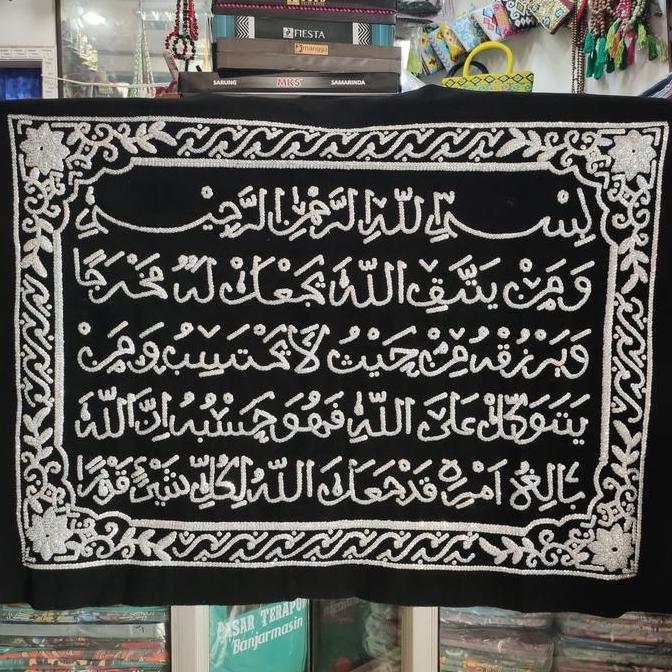 FIESTA
mangga
SARUNG MKS SAMARINDA
بِسْمِ اللّٰهِ الرَّحْمٰنِ الرَّحِيْمِ
وَمَنْ يَتَّقِ اللّٰهَ يَجْعَلْ لَهُ مَخْرَجًا
وَيَرْزُقْهُ مِنْ حَيْثُ لَا يَحْتَسِبُ وَمَنْ
يَتَوَكَّلْ عَلَى اللّٰهِ فَهُوَ حَسْبُهُ اِنَّ اللّٰهَ
بَالِغُ اَمْرِهِ قَدْ جَعَلَ اللّٰهُ لِكُلِّ شَيْءٍ قَدْرًا
PASAR TERAPUNG
Banjarmasin